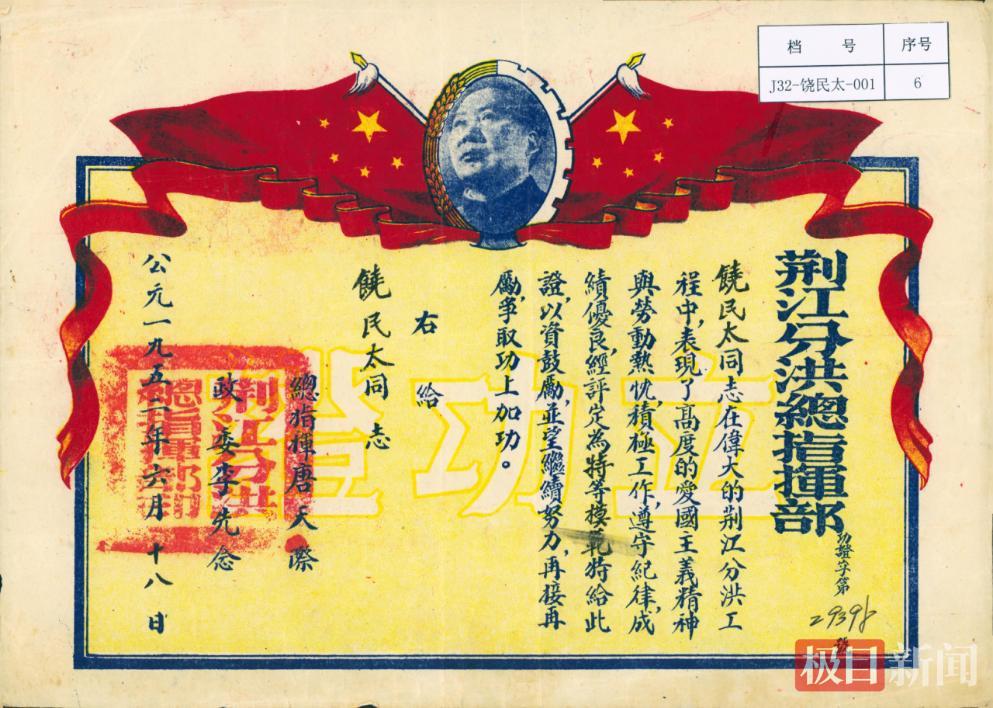 档 号
序号
J32-饶民太-001
6
荆江分洪總指揮部
功證字第
29398
號
饒民太同志在偉大的荆江分洪工
程中,表現了高度的愛國主義精神
與勞動熱忱,積極工作,遵守紀律,成
績優良,經評定為特等模範,特給此
證,以資鼓勵,並望繼續努力,再接再
勵,爭取功上加功。
右給
饒民太同志
總指揮唐天際
政委李先念
公元一九五二年六月十八日
立功證
荆江分洪
總指揮部印
极目新闻